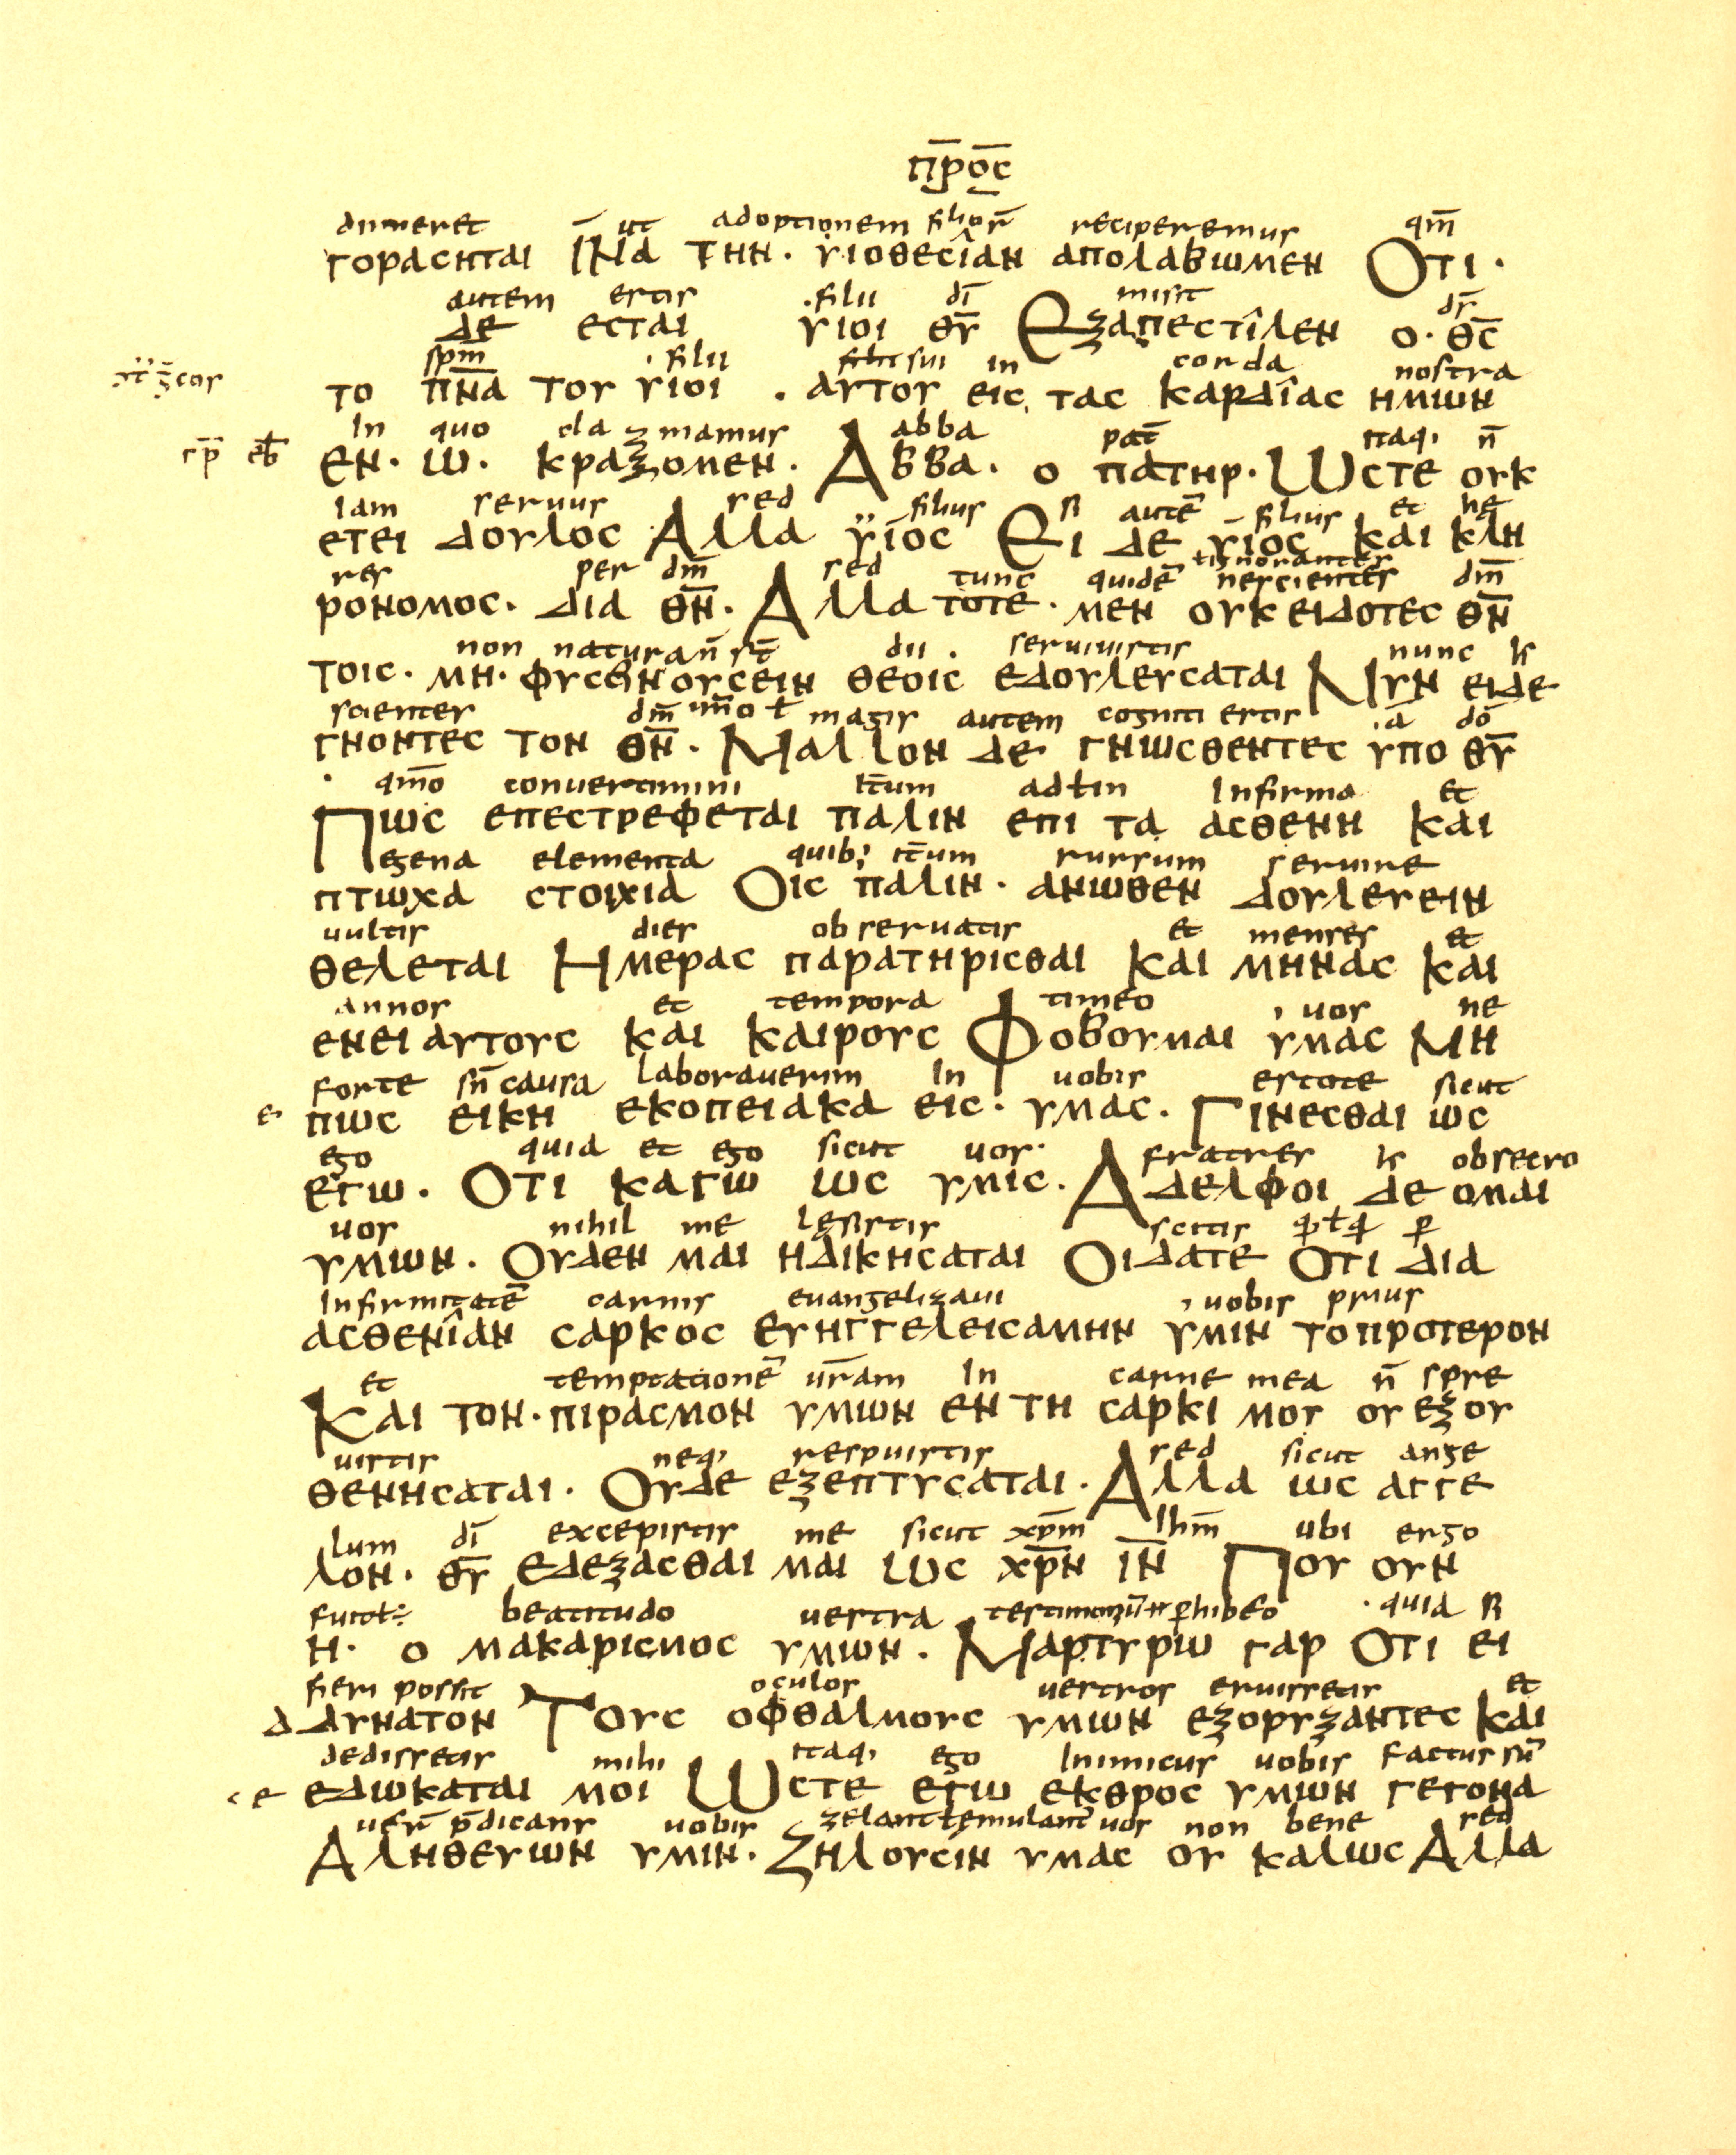 π̅ρο̅ς
dimeret ut adoptionem filior̄ reciperemur qm̄
γορασηται ΙΝα την · υιοθεσîαν απολαβωμεν Οτι ·
autem estis · filii dī misit ds̄
δε εσται υιοι θ̅υ̅ Εξαπεστîλεν ο · θ̅ς̅
spm̄ · filii sui in corda nostra
το π̅ν̅α̅ του υιοι · αυτου εις τας καρδîας ημων
In quo cla zmamus abba pat̄ itaq, n̄
εν · ω · κραζομεν · Αββα · ο πατηρ · Ωστε ουκ
Iam servus sed filius si autē filius et he
ετει δουλος Αλλα υιος Ει δε υιος και κλη
res per dm̄ sed tunc quidē ł ignorantes nescientes dm̄
ρονομος · δια θ̅ν̅ · Αλλα τοτε · μεν ουκ ειδοτες θ̅ν̅
non naturā n̄ st̄ dii · servivistis nunc
τοις · μη · φυσει ουσειν θεοις εδουλευσαται Νυν ειδε
scientes dm̄ ł magis autem cogniti estis · a dō
γνοντες τον θ̅ν̅ · Μαλλον δε γνωσθεντες υπο θ̅υ̅
qm̄o convertimini it̄um ad ł in Infirma et
Πως επεστρεφεται παλιν επι τα ασθενη και
egena elementa quib; it̄um rursum servire
πτωχα στοιχια Οις παλιν · ανωθεν δουλευειν
vultis dies observatis et menses et
θελεται Ημερας παρατηρισθαι και μηνας και
annos et tempora timeo vos ne
ενει αυτους και καιρους Φοβουμαι υμας Μη
forte sn̄ causa laboraverim In vobis estote sicut
πως εικη εκοπειακα εις · υμας · Γινεσθαι ως
ego quia et ego sicut vos · fratres obsecro
εγω · Οτι καγω ως υμις · Αδελφοι δεομαι
vos nihil me lesistis scitis
υμων · Ουδεν μαι ηδικησαται Οιδατε Οτι δια
Infirmitatē carnis evangelizavi vobis prius
ασθενîαν σαρκος ευηγγελεισαμην υμιν το προτερον
et temptationē vr̄am In carne mea n̄ spre
Και τον · πιρασμον υμων εν τη σαρκι μου ουεξου
vistis neq, respuistis sed sicut ange
θενησαται · Ουδε εξεπτυσαται · Αλλα ως αγγε
lum dī excepistis me sicut xp̄m Ihm̄ ubi ergo
λον · θ̅υ̅ εδεξασθαι μαι ως χ̅ρ̅ν̅ ι̅ν̅ Που ουν
beatitudo vestra phibeo · quia si
η · ο μακαρισμος υμων · Μαρτυρω γαρ Οτι ει
fieri possit oculos vestros eruissetis et
δυνατον Τους οφθαλμους υμων εξορυξαντες και
dedissetis mihi itaq, ego Inimicus vobis factus sū
εδωκαται μοι Ωστε εγω εκθρος υμων γεγονα
ver̄ p̄dicans vobis zelant ł emulant̄ vos non bene sed
Αληθευων υμιν · Ζηλουσιν υμας ου καλως Αλλα